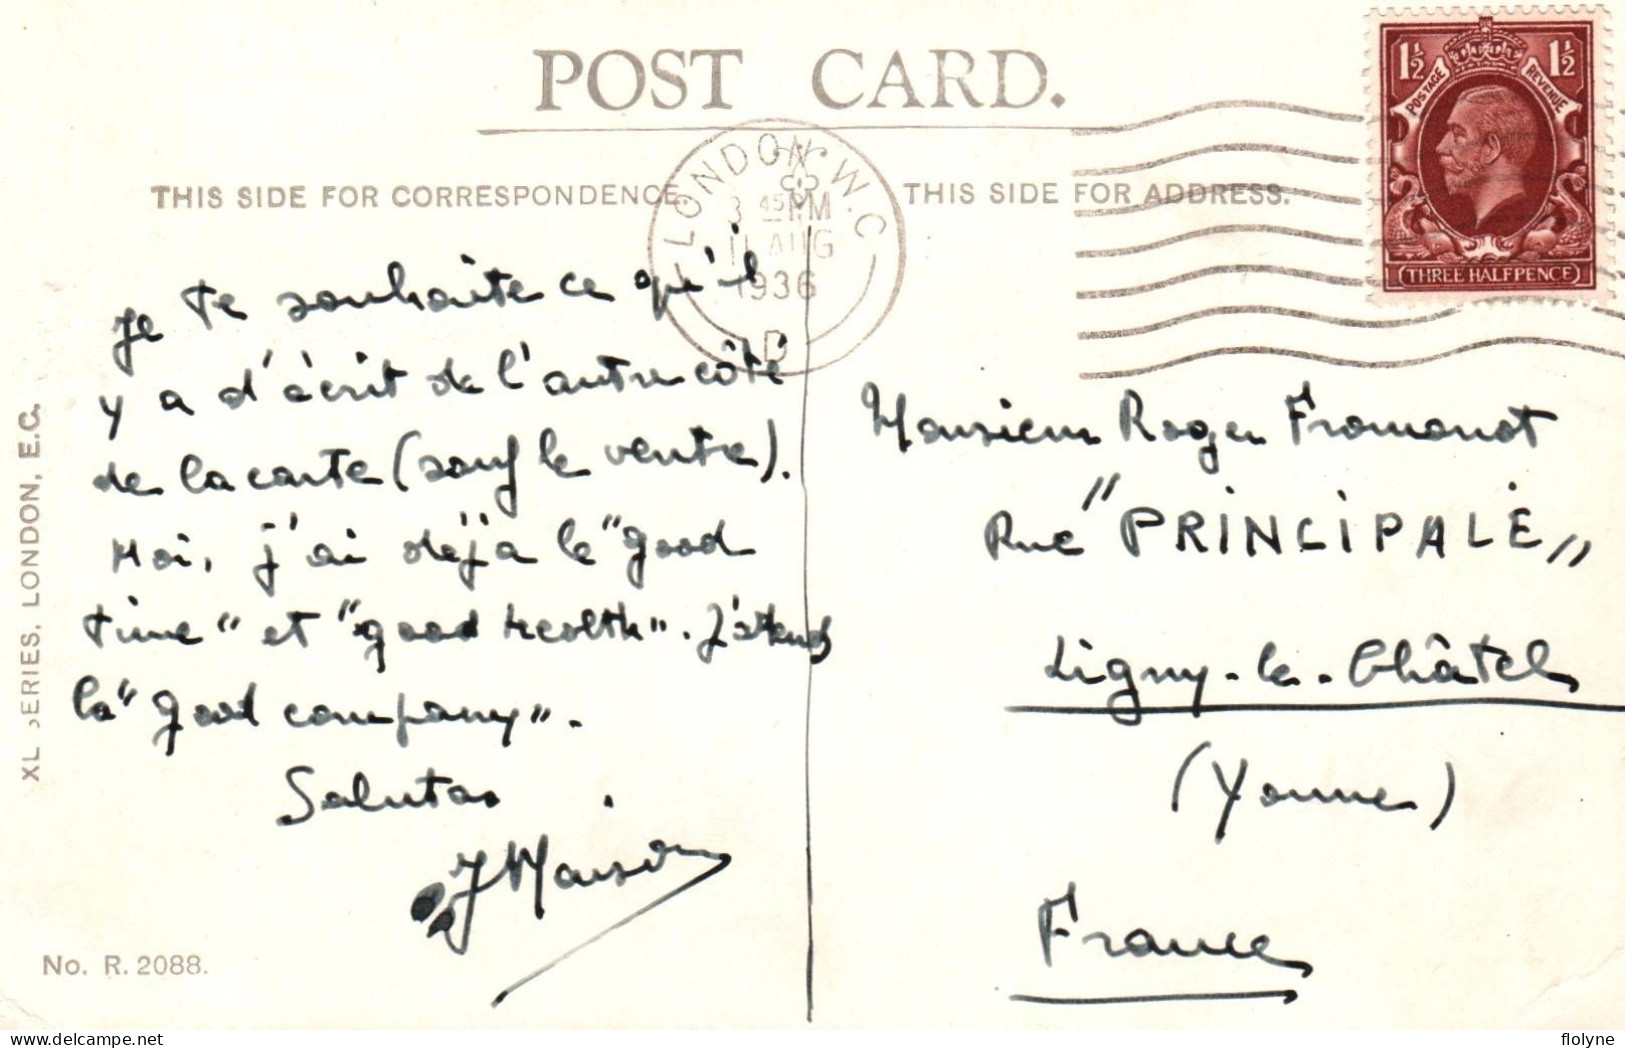 POST CARD.
THIS SIDE FOR CORRESPONDENCE
THIS SIDE FOR ADDRESS.
LONDON. W.C
3 45 PM
11 AUG
1936
D
1½ 1½
POSTAGE REVENUE
THREE HALFPENCE
Je te souhaite ce qu'il
y a d'écrit de l'autre côté
de la carte (sauf le ventre).
Moi, j'ai déjà le "good
time" et "good health". J'attends
la "good company".
Salutas
J Maison
Monsieur Roger Fromonot
Rue "PRINCIPALE"
Ligny-le-Châtel
(Yonne)
France
XL SERIES, LONDON, E.C.
No. R. 2088.
delcampe.net
flolyne